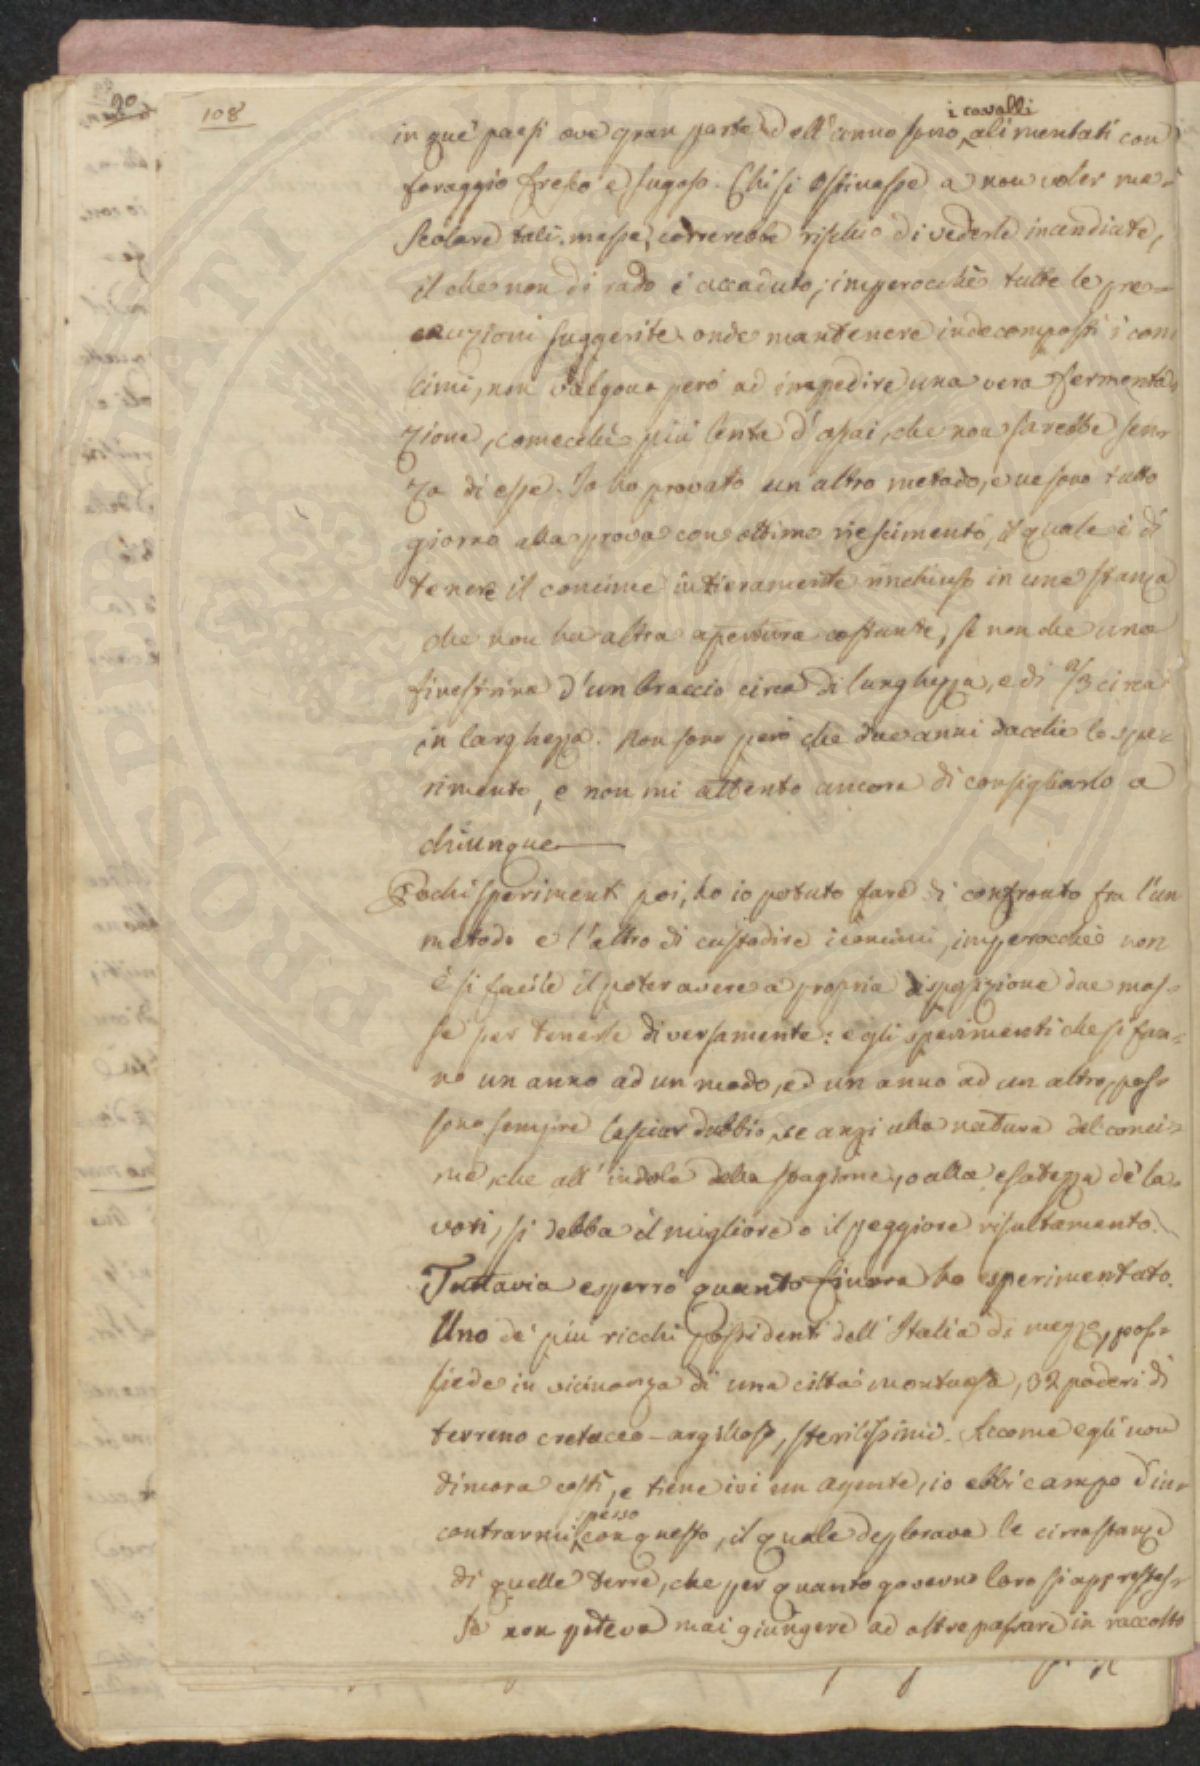 108
i cavalli
in que' paesi ove gran parte dell'anno sono alimentati con
foraggio fresco e sugoso. Chi si ostinasse a non voler me-
scolare tali masse, correrebbe rischio di vederle incendiate,
il che non di rado è accaduto; imperocchè tutte le pre-
cauzioni suggerite onde mantenere indecomposti i con
cimi, non valgono però ad impedire una vera fermenta-
zione, comecchè più lenta d'assai, che non sarebbe sen-
za di esse. Io ho provato un altro metodo, e ne sono tutto
giorno alla prova con ottimo riescimento, il quale è di
tenere il concime intieramente rinchiuso in una stanza
che non ha altra apertura costante, se non che una
finestrina d'un braccio circa di lunghezza, e di 2/3 circa
in larghezza. Non sono però che due anni dacchè lo spe-
rimento, e non mi attento ancora di consigliarlo a
chiunque
Pochi sperimenti poi, ho io potuto fare di confronto fra l'un
metodo e l'altro di custodire i concimi, imperocchè non
è sì facile il poter avere a propria disposizione due mas-
se per tenerle diversamente: e gli sperimenti che si fan-
no un anno ad un modo, ed un anno ad un altro, pos-
sono sempre lasciar dubbio, se anzi alla natura del conci-
me, che all'indole della stagione, o alla esatezza de' la-
vori, si debba il migliore o il peggiore risultamento.
Tuttavia esporrò quanto finora ho esperimentato.
Uno de' più ricchi possidenti dell'Italia di mezzo, pos-
siede in vicinanza di una città montuosa, 32 poderi di
terreno cretaceo-argilloso, sterilissimi. Siccome egli non
dimora costì, e tiene ivi un agente, io ebbi campo d'in-
spesso
contrarmi con questo, il quale deplorava le circostanze
di quelle terre, che per quanto governo loro si apprestas-
se non poteva mai giungere ad oltrepassare in raccolto